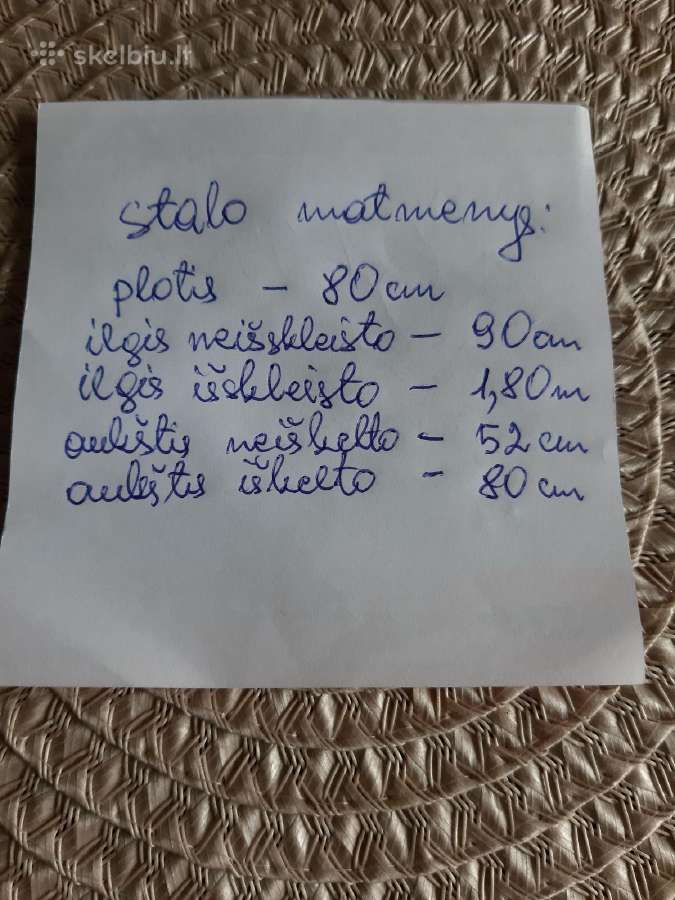 skelbiu.lt
stalo matmenys:
plotis - 80cm
ilgis neišskleisto - 90cm
ilgis išskleisto - 1,80m
aukštis neiškelto - 52cm
aukštis iškelto - 80cm